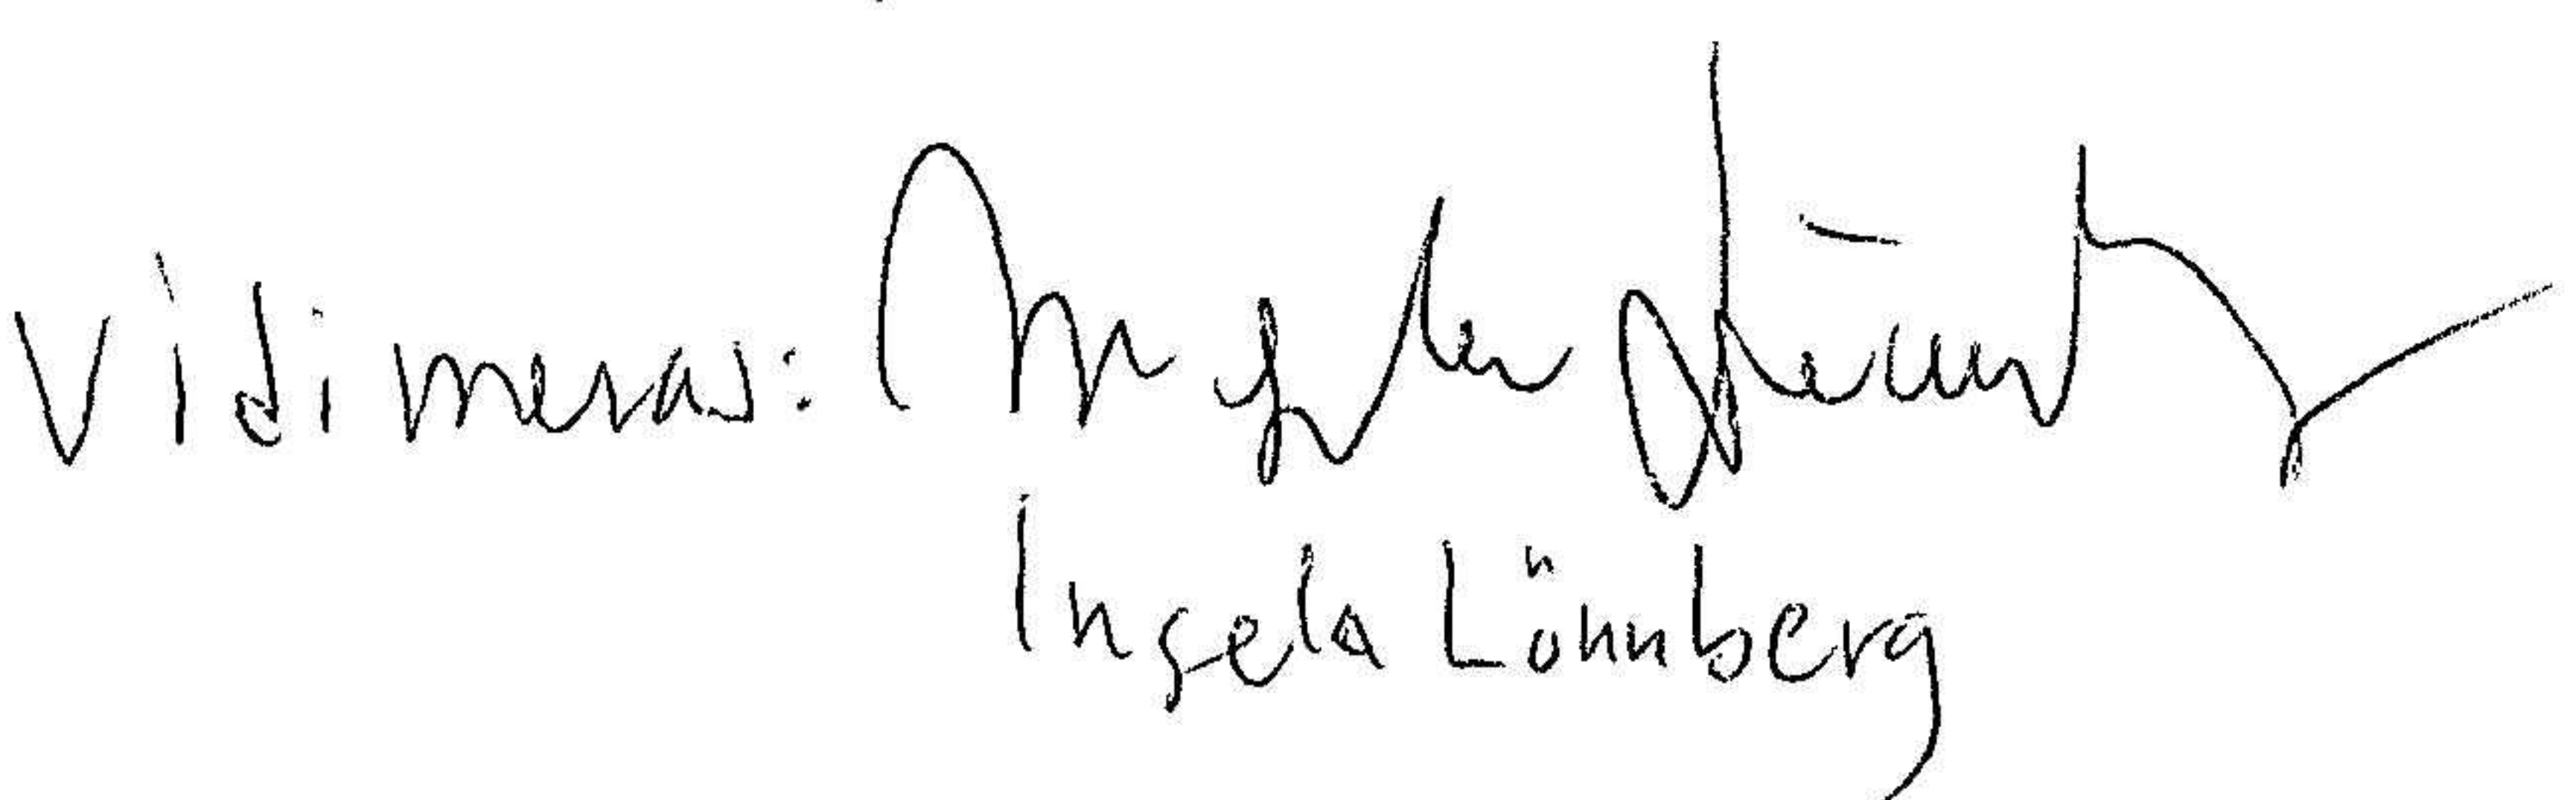 Vidimeras: Ingela Lönnberg
Ingela Lönnberg